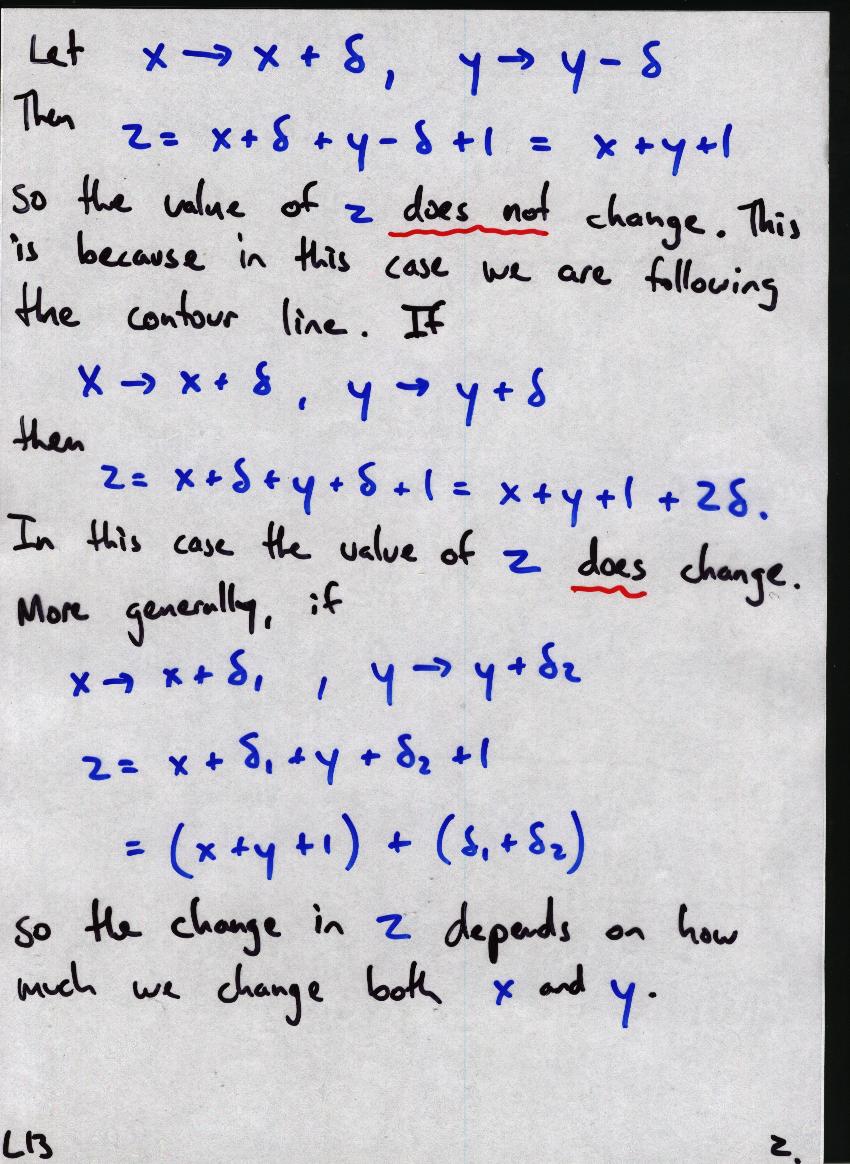 Let x → x + δ, y → y - δ
Then
z = x + δ + y - δ + 1 = x + y + 1
so the value of z does not change. This
is because in this case we are following
the contour line. If
x → x + δ, y → y + δ
then
z = x + δ + y + δ + 1 = x + y + 1 + 2δ.
In this case the value of z does change.
More generally, if
x → x + δ₁ , y → y + δ₂
z = x + δ₁ + y + δ₂ + 1
= (x + y + 1) + (δ₁ + δ₂)
so the change in z depends on how
much we change both x and y.
L13 2.